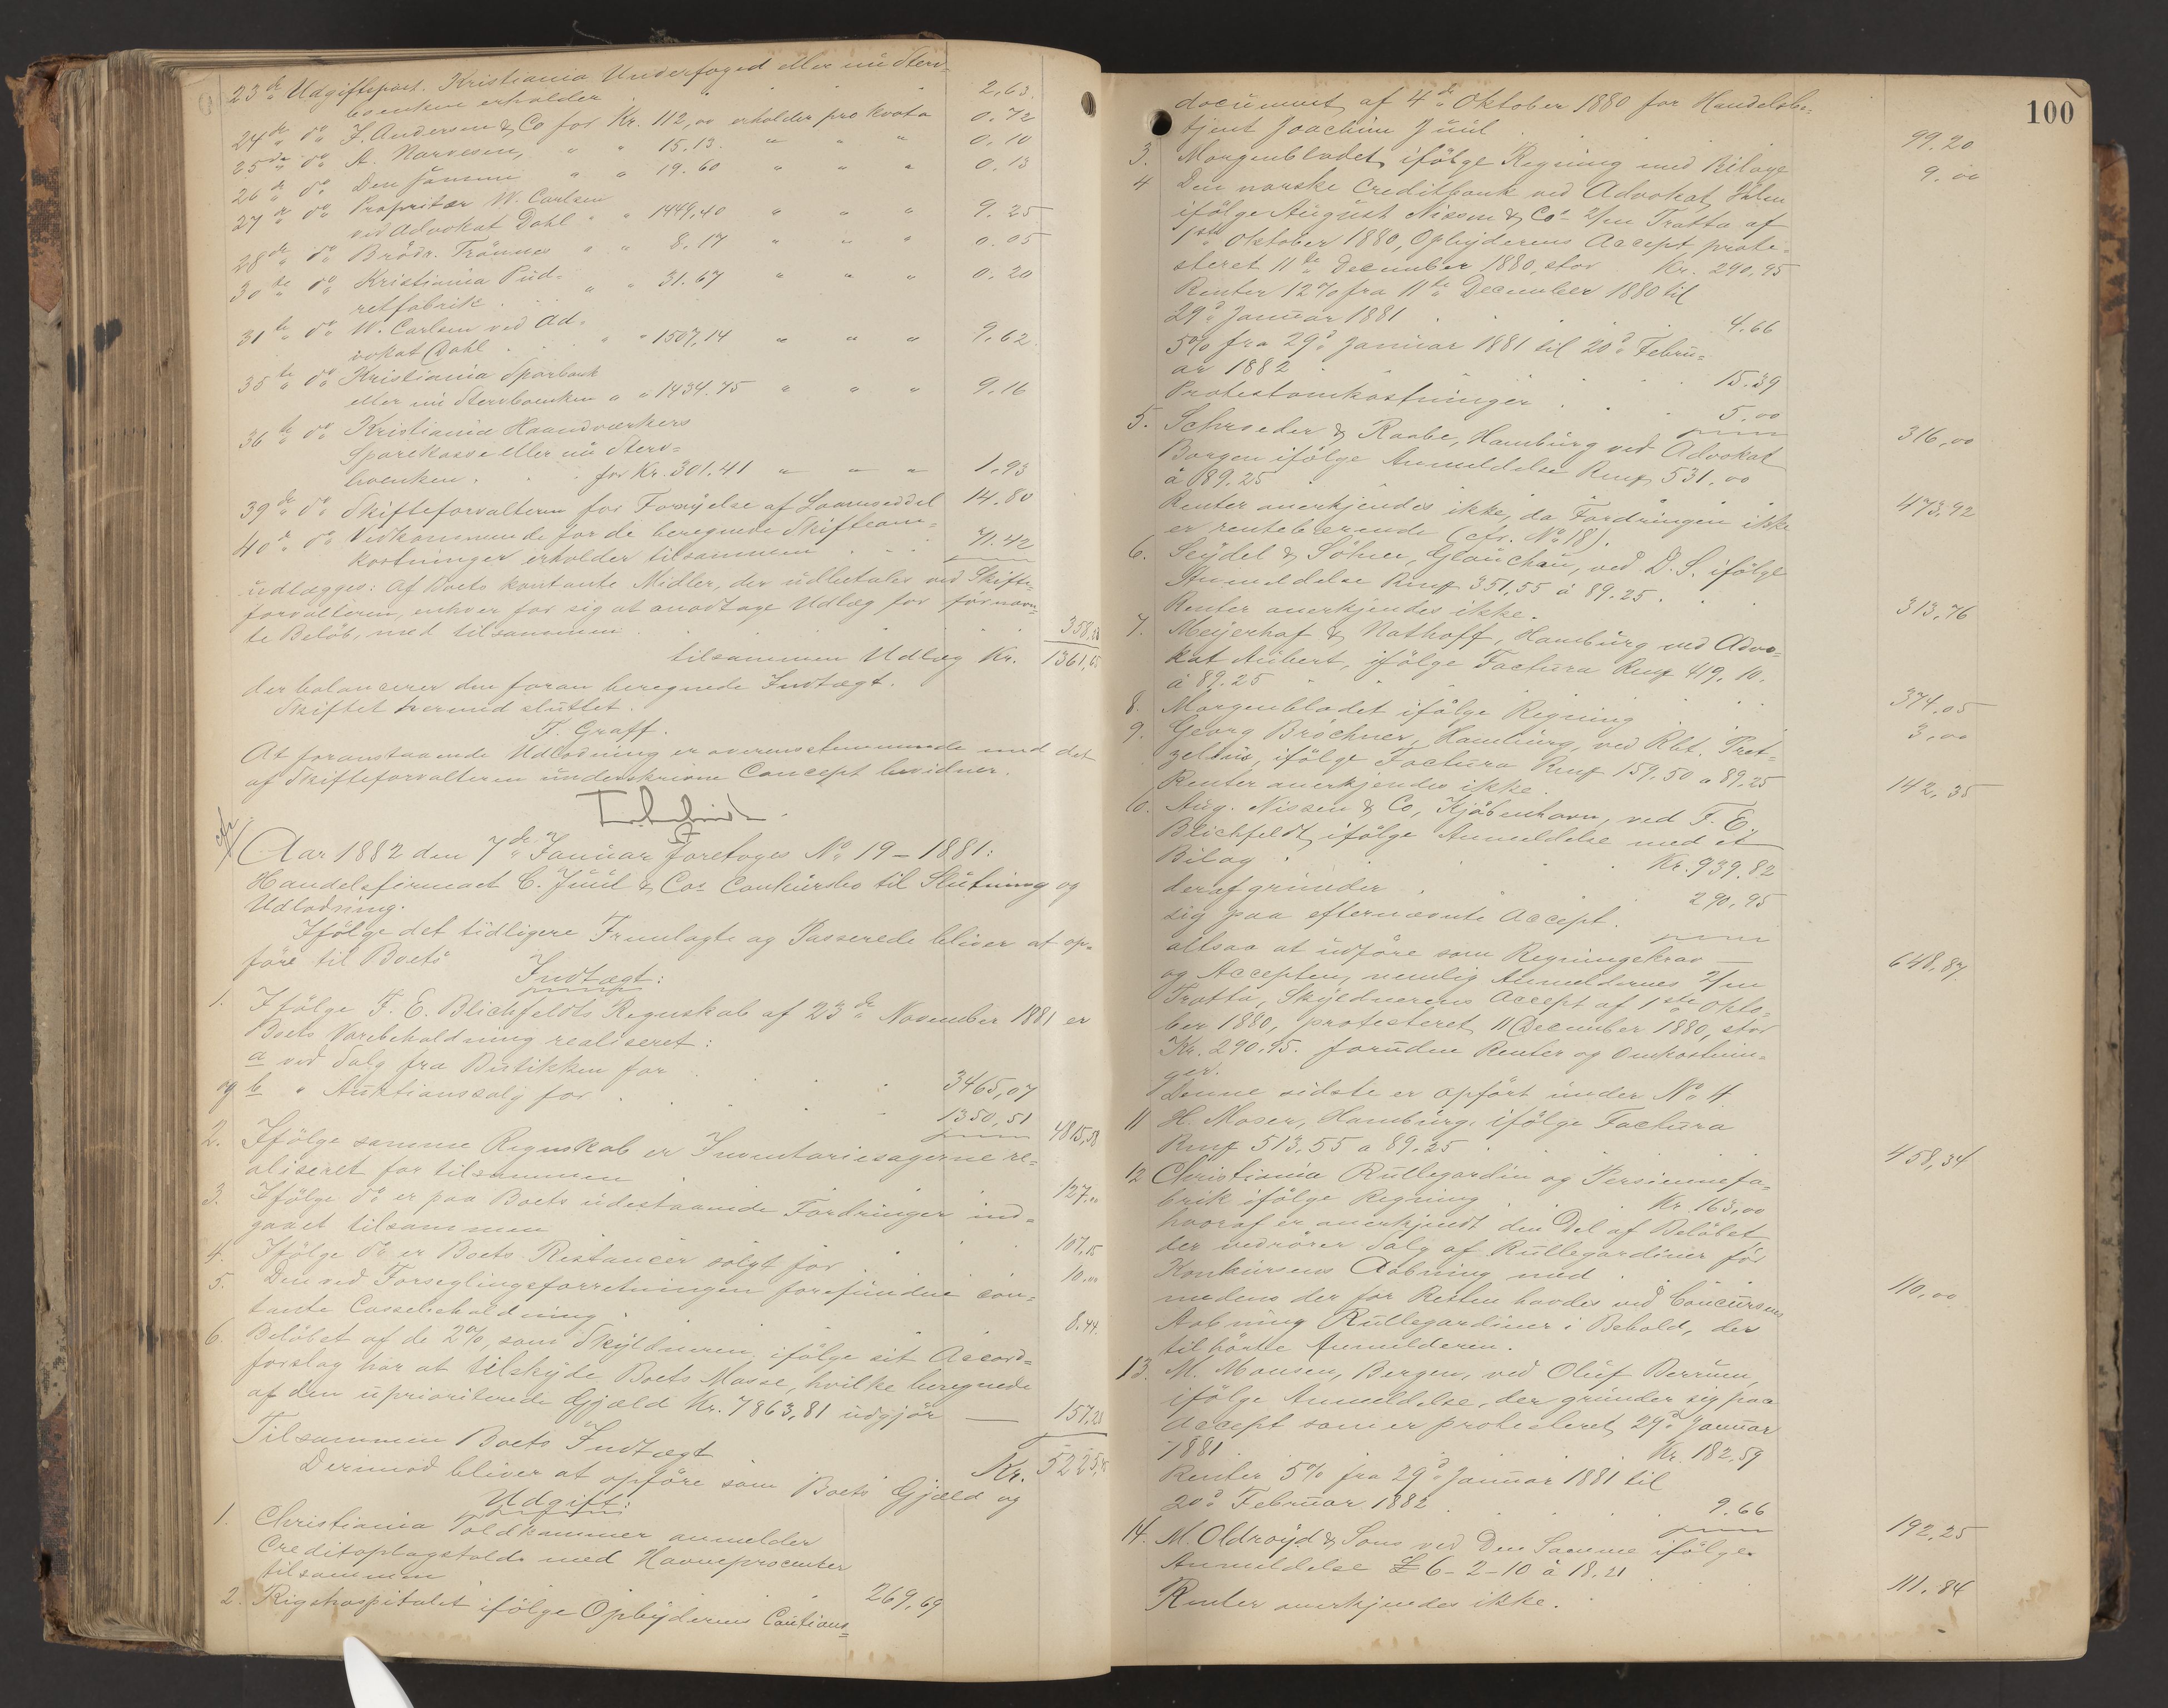 23de Udgiftspost. Kristiania Underfoged eller nu Sterv-
boenken erholder 2,63.
24de do J. Andersen & Co for Kr. 112,00 erholder pro kvota 0.72
25de do A. Narvesen, " " 15.13. " " " 0.10
26de do Den samme " " 19.60 " " " 0.13
27de do Proprietær W. Carlsen
ved Advokat Dahl " " 1449,40 " " " 9.25
28de do Brödr. Trönnes " " 8,17 " " " 0.05
30te do Kristiania Pud-
retfabrik " " 31.67 " " " 0,20
31te do W. Carlsen ved Ad-
vokat Dahl " " 1507,14 " " " 9,62
35te do Kristiania Sparbank
eller nu Stervboenken " " 1434.75 " " " 9,16
36te do Kristiania Haandværkers
Sparekasse eller nu Sterv-
boenken for Kr. 301.41 " " " 1,93
39de do Skifteforvalteren for Fornyelse af Laaneseddel 14.80
40de do Vedkommende for de beregnede Skifteom-
kostninger erholder tilsammen 71.42
udlægges: Af Boets kontante Midler, der udbetales ved Skifte-
forvalteren, enhver for sig at modtage Udlæg for fornævn-
te Belöb, med tilsammen 358,28
tilsammen Udlæg Kr. 1361,65
der balancerer den foran beregnede Indtægt.
Skiftet hermed sluttet.
F. Graff.
At foranstaaende Udlodning er overensstemmende med det
af Skifteforvalteren underskrevne Concept bevidner.
Aar 1882 den 7de Januar foretoges No 19-1881:
Handelsfirmaet C. Juul & Cos Conkursbo til Slutning og
Udlodning.
Ifölge det tidligere Fremlagte og Passerede bliver at op-
före til Boets
Indtægt:
1. Ifölge F. E. Blichfeldts Regnskab af 23de November 1881 er
Boets Varebeholdning realiseret:
a ved Salg fra Butikken for 3465,07
og b " Auktionssalg for 1350,51 4815,58
2. Ifölge samme Regnskab er Inventariesagerne re-
aliseret for tilsammen 127,00
3. Ifölge do er paa Boets udestaaende Fordringer ind-
gaaet tilsammen 107,15
4. Ifölge do er Boets Restancer solgt for 10,00
5. Den ved Forseglingsforretningen forefundne con-
tante Cassebeholdning 8.44.
6. Belöbet af de 2%, som Skyldneren, ifölge sit Accord-
forslag har at tilskyde Boets Masse, hvilke beregnede
af den uprioriterede Gjæld Kr. 7863,81 udgjör 157,28
Tilsammen Boets Indtægt Kr. 5225,45
Derimod bliver at opföre som Boets Gjæld og
Udgift:
1. Christiania Toldkammer anmelder
Creditoplagstold med Havneprocenter
tilsammen 269,69
2. Rigshospitalet ifölge Opbyderens Cautions-
100
document af 4de Oktober 1880 for Handelsbe-
tjent Joachim Juul 99.20
3. Morgenbladet, ifölge Regning med Bilage 9.00
4 Den norske Creditbank ved Advokat Hålm
ifölge August Nissen & Cos 2/m Tratta af
1ste Oktober 1880, Opbyderens Accept prote-
steret 11te December 1880, stor Kr. 290,95
Renter 12% fra 11te December 1880 til
29d Januar 1881 4.66
5% fra 29d Januar 1881 til 20d Febru-
ar 1882 15.39
Protestomkostninger 5.00 316,00
5. Schroeder & Raabe, Hamburg ved Advokat
Borgen ifölge Anmeldelse Rmp 531,00
à 89.25 473,92
Renter anerkjendes ikke, da Fordringen ikke
er rentebærende (cfr. No 18).
6. Seydel & Söhne, Glauchau, ved D. S. ifölge
Anmeldelse Rmp 351,55 à 89.25 313,76
Renter anerkjendes ikke.
7. Meyerhof & Nathoff, Hamburg ved Advo-
kat Aubert, ifölge Factura Rmp 419,10.
à 89.25 374.05
8. Morgenbladet ifölge Regning 3,00
9. Georg Bröchner, Hamburg, ved Rbt. Pret-
zelius, ifölge Factura Rmp 159,50 a 89,25 142,35
Renter anerkjendes ikke.
10. Aug. Nissen & Co, Kjöbenhavn, ved F. E.
Blichfeldt, ifölge Anmeldelse med et
Bilag Kr. 939.82
deraf grunder 290,95
sig paa efternævnte Accept.
altsaa at udföre som Regningskrav 648,87.
og Accepten, nemlig Anmeldernes 2/m
Tratta, Skyldnerens Accept af 1ste Okto-
ber 1880, protesteret 11 December 1880, stor
Kr. 290.95. foruden Renter og Omkostnin-
ger.
Denne sidste er opfört under No 4.
11 H. Moser, Hamburg, ifölge Factura
Rmp 513,55 a 89.25 458,34
12 Christiania Rullegardin og Persiennefa-
brik ifölge Regning Kr. 163,00
hvoraf er anerkjendt den Del af Belöbet
der vedrörer Salg af Rullegardiner för
Konkursens Aabning med 110,00
medens der for Resten havdes ved Concursens
Aabning Rullegardiner i Behold, der
tilhörte Anmelderen.
13. M. Monsen, Bergen, ved Oluf Berrum,
ifölge Anmeldelse, der grunder sig paa
Accept som er protesteret 29d Januar
1881 Kr. 182,59
Renter 5% fra 29d Januar 1881 til
20d Februar 1882 9.66 192,25
14. M. Oldroyd & Sons ved Den Samme ifölge
Anmeldelse £ 6-2-10 à 18.21 111.84
Renter anerkjendes ikke.